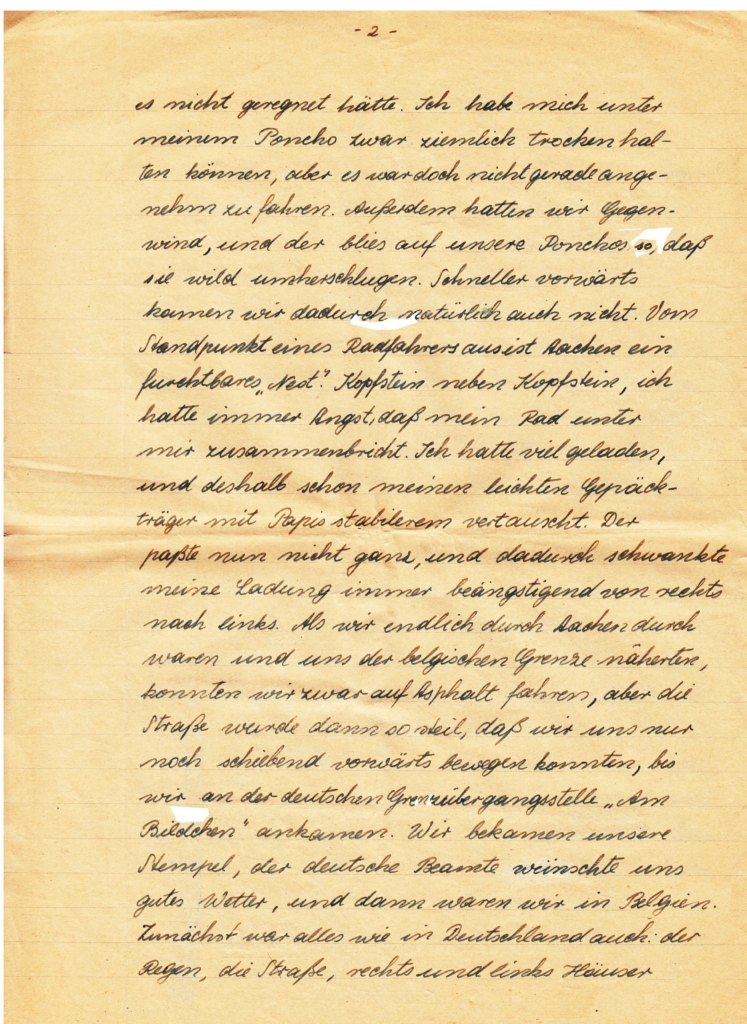 - 2 -
es nicht geregnet hätte. Ich habe mich unter
meinem Poncho zwar ziemlich trocken hal-
ten können, aber es war doch nicht gerade ange-
nehm zu fahren. Außerdem hatten wir Gegen-
wind, und der blies auf unsere Ponchos so, daß
sie wild umherschlugen. Schneller vorwärts
kamen wir dadurch natürlich auch nicht. Vom
Standpunkt eines Radfahrers aus ist Aachen ein
furchtbares „Nest“. Kopfstein neben Kopfstein, ich
hatte immer Angst, daß mein Rad unter
mir zusammenbricht. Ich hatte viel geladen,
und deshalb schon meinen leichten Gepäck-
träger mit Papis stabilerem vertauscht. Der
paßte nun nicht ganz, und dadurch schwankte
meine Ladung immer beängstigend von rechts
nach links. Als wir endlich durch Aachen durch
waren und uns der belgischen Grenze näherten,
konnten wir zwar auf Asphalt fahren, aber die
Straße wurde dann so steil, daß wir uns nur
noch schiebend vorwärts bewegen konnten, bis
wir an der deutschen Grenzübergangsstelle „Am
Bildchen“ ankamen. Wir bekamen unsere
Stempel, der deutsche Beamte wünschte uns
gutes Wetter, und dann waren wir in Belgien.
Zunächst war alles wie in Deutschland auch: der
Regen, die Straße, rechts und links Häuser